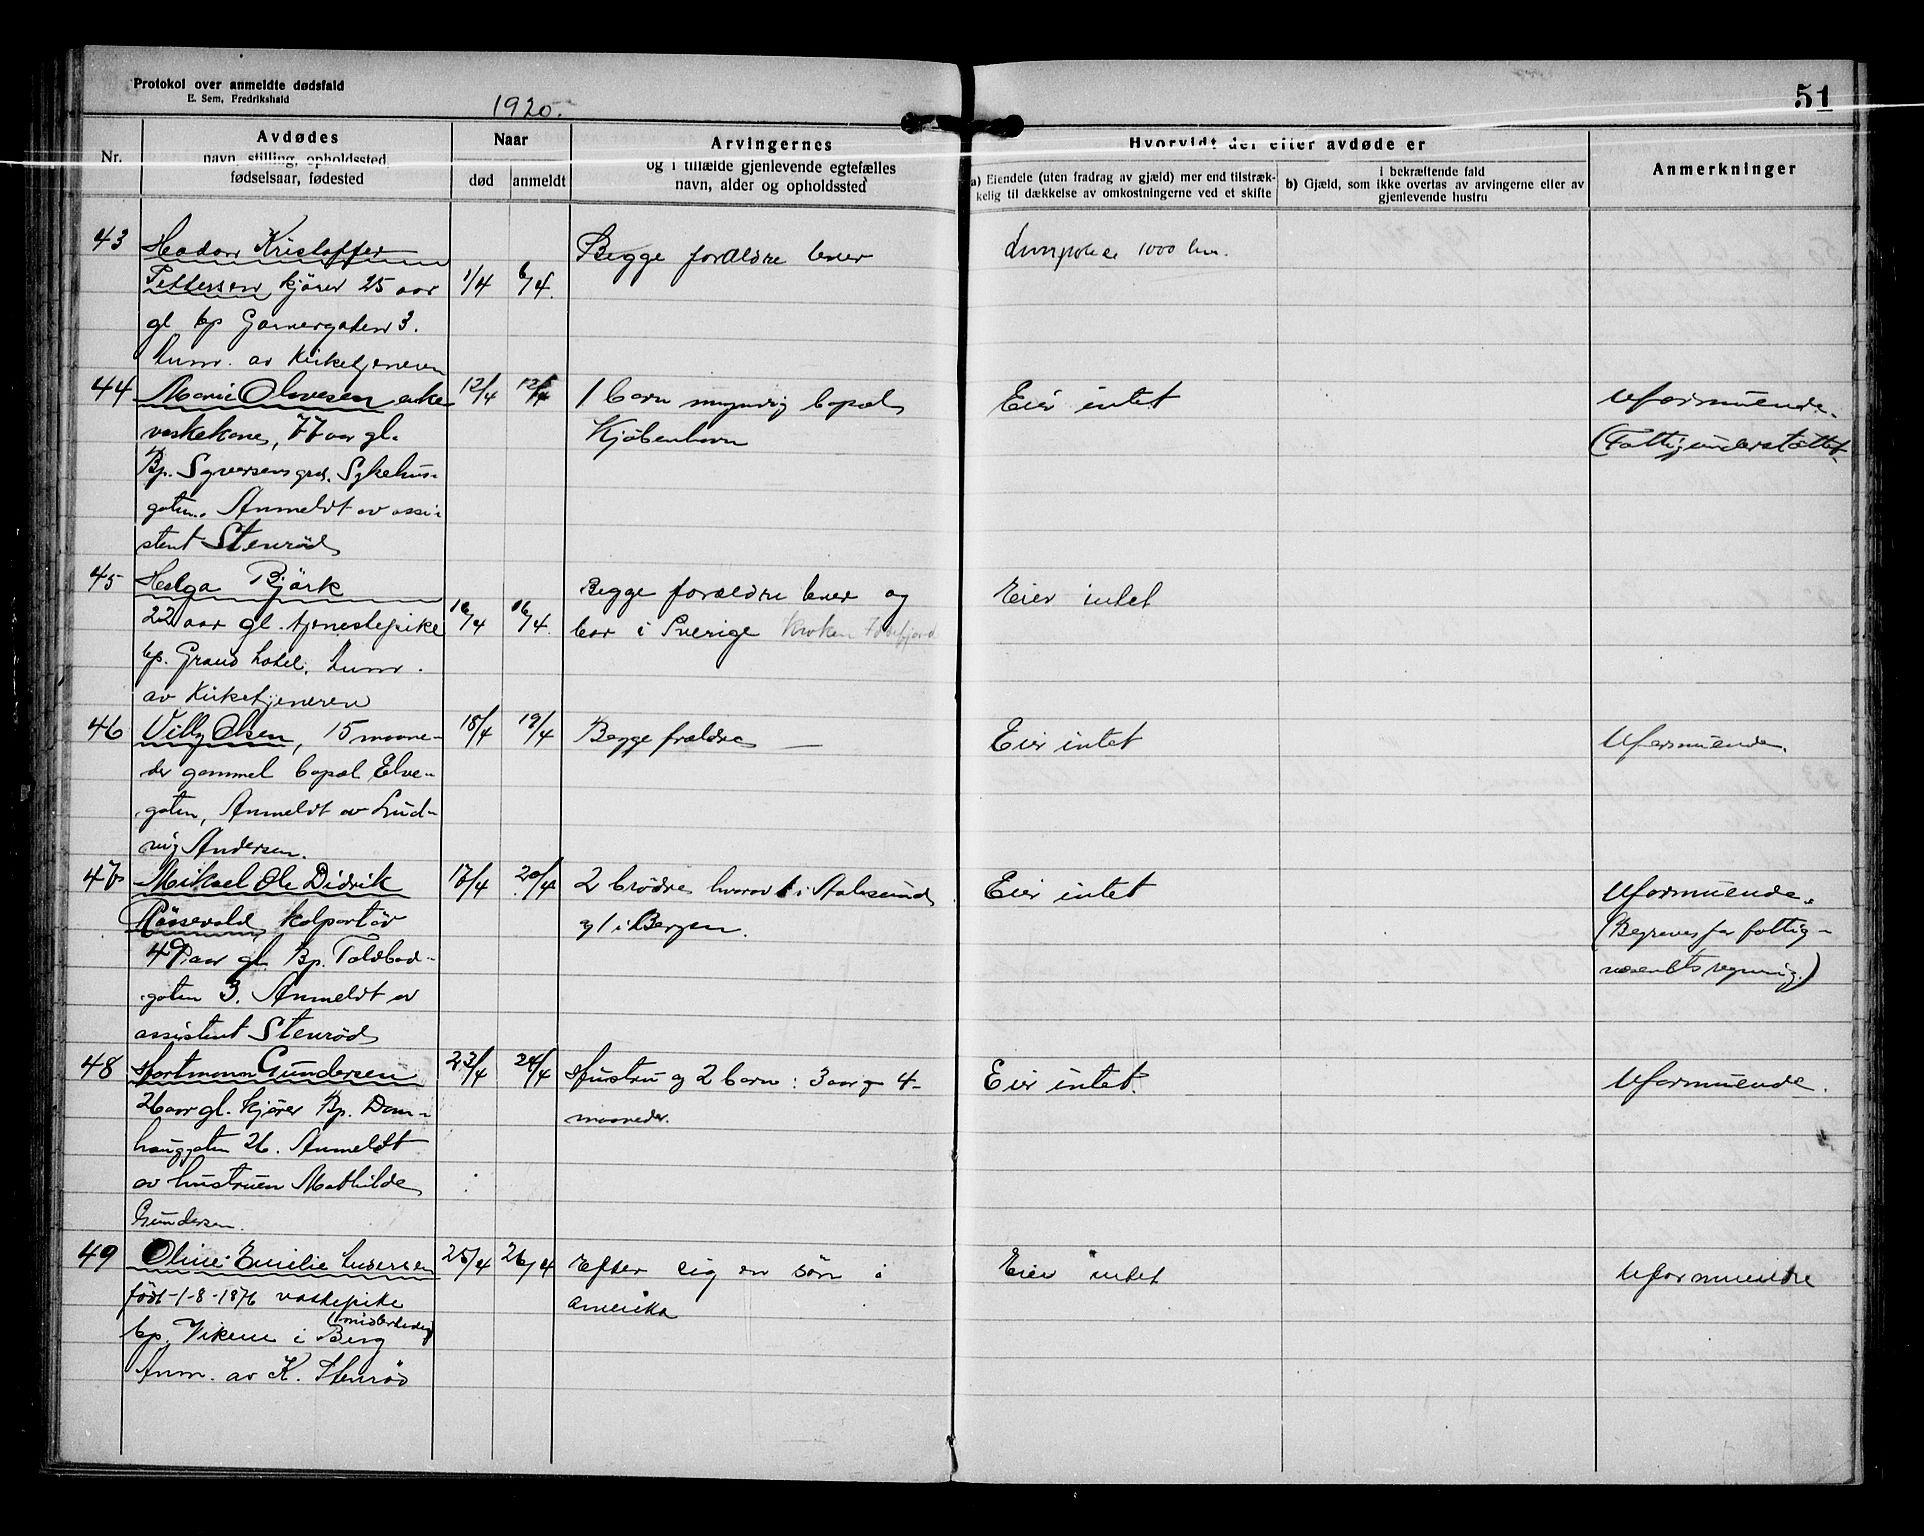 Protokol over anmeldte dødsfald
E. Sem, Fredrikshald
1920.
51
Nr.
Avdødes
navn, stilling, opholdssted,
fødselsaar, fødested
Naar
død
anmeldt
Arvingernes
og i tilfælde gjenlevende egtefælles
navn, alder og opholdssted
Hvorvidt der efter avdøde er
a) Eiendele (uten fradrag av gjæld) mer end tilstræk-
kelig til dækkelse av omkostningerne ved et skifte
i bekræftende fald
b) Gjæld, som ikke overtas av arvingerne eller av
gjenlevende hustru
Anmerkninger
43
Kristoffer
Pettersen kjører 25 aar
gl bp Garvergaten 3.
av Kirketjeneren
1/4
6/4.
Begge forældre lever
1000 kr.
44
Marie Olavesen enke
vaskekone, 77 aar gl.
Bp. Syversens grd. Sykehus-
gaten. Anmeldt av assi-
stent Stenrød
12/4
12/4
1 barn myndig bopæl
Kjøbenhavn
Eier intet
Uformuende.
(Fattigunderstøttet
45
Helga Bjørk
22 aar gl. tjenestepike
bp. Grand hotel.
av Kirketjeneren
16/4
16/4.
Begge forældre lever og
bor i Sverige Kroken
Eier intet
46
Villy Olsen, 15 maane-
der gammel bopæl Elve-
gaten, Anmeldt av Lud-
vig Andersen.
18/4
19/4
Begge forældre —
Eier intet
Uformuende.
47
Mikael Ole Didrik
kolportør
49 aar gl. Bp. Toldbod-
gaten 3. Anmeldt av
assistent Stenrød
17/4
20/4
2 brødre hvorav 1 i Aalesund
og 1 i Bergen.
Eier intet
Uformuende.
(Begraves for fattig-
væsenets regning.)
48
Hartmann Gundersen
26 aar gl. kjører Bp. Dam-
hauggaten 26. Anmeldt
av hustruen Mathilde
Gundersen.
23/4
24/4
Hustru og 2 barn: 3 aar og 4-
maaneder.
Eier intet.
Uformuende.
49
Oline Emilie
født -1-8-1876 vaskepike
(midlertidig)
bp. Vikene i Berg
Anm. av K. Stenrød
25/4
26/4
Efter sig en søn i
Amerika
Eier intet
Uformuende